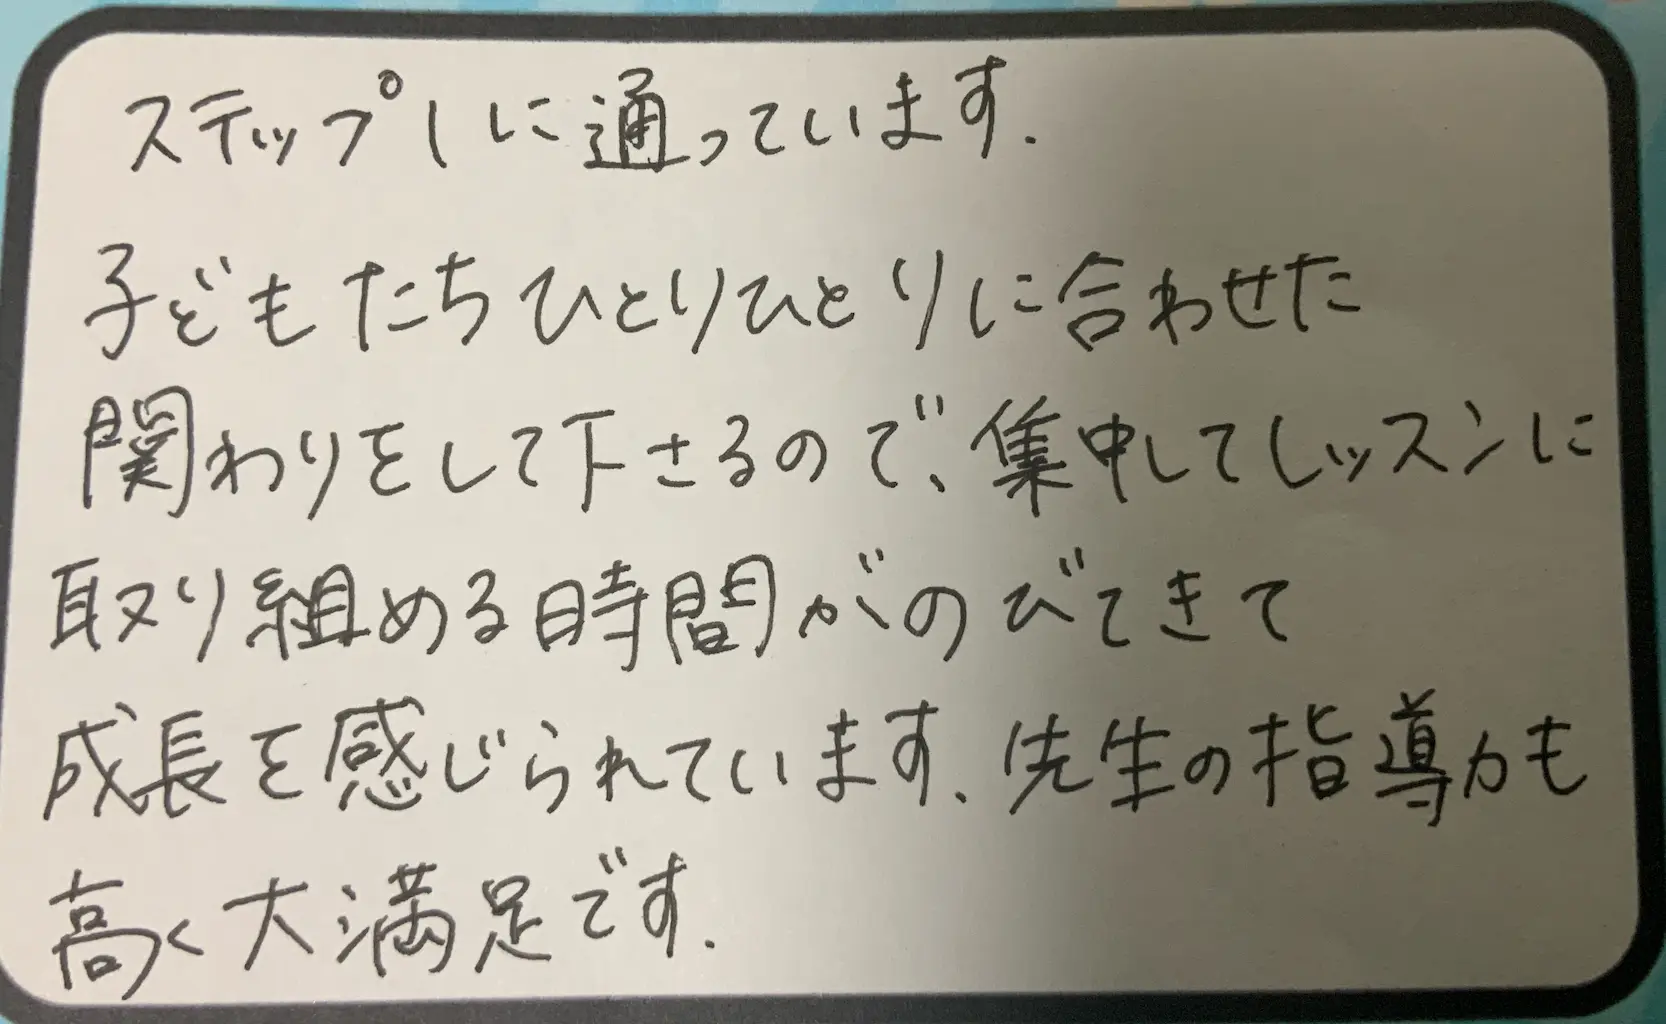 ステップ1に通っています.
子どもたちひとりひとりに合わせた
関わりをして下さるので、集中してレッスンに
取り組める時間がのびてきて
成長を感じられています. 先生の指導力も
高く大満足です.